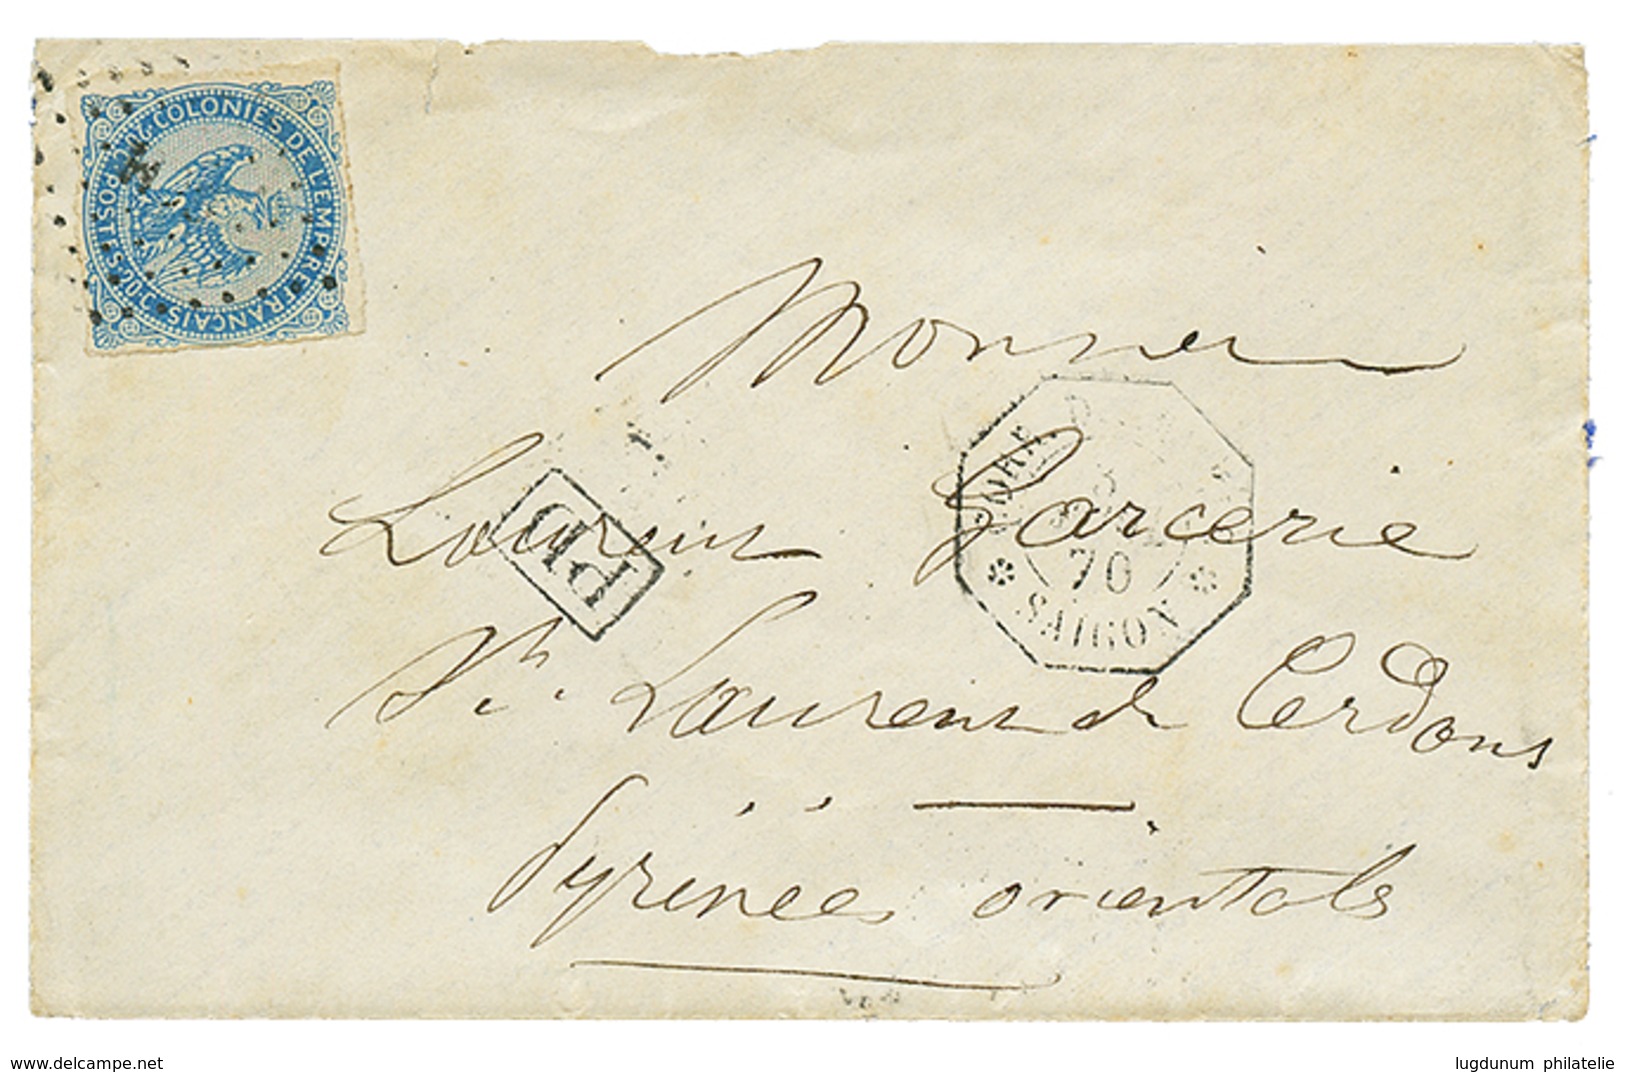 COLONIES DE L'EMPIRE FRANÇAIS
20 C. POSTES 20 C.
Monsieur
Laurent Garcerie
St. Laurent de Cerdans
Pyrénées orientals
PD
CORR. D.
70
SAIGON
www.delcampe.net
lugdunum philatelie